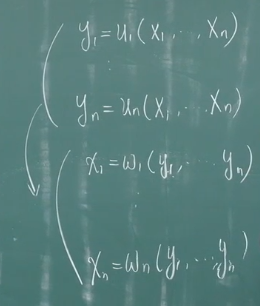 y₁ = u₁(x₁, ..., xₙ)
⋮
yₙ = uₙ(x₁, ... xₙ)
x₁ = ω₁(y₁, ... yₙ)
⋮
xₙ = ωₙ(y₁, ..., yₙ)